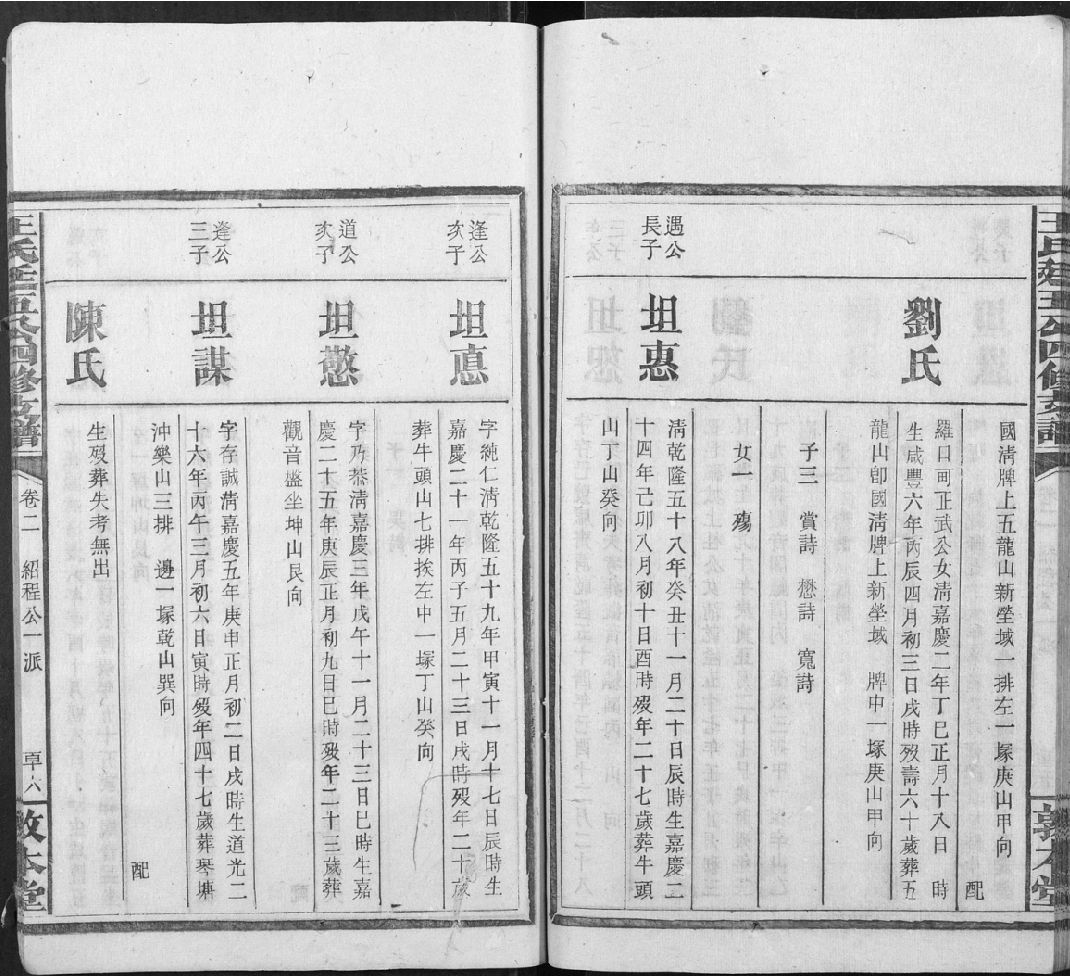 國淸牌上五龍山新塋域一排左一塚庚山甲向
配
劉氏
羅口町正武公女淸嘉慶二年丁巳正月十八日 時
生咸豐六年丙辰四月初三日戌時歿壽六十歲葬五
龍山卽國淸牌上新塋域 牌中一塚庚山甲向
子三 賞詩 懋詩 寬詩
女一 殤
遇公長子
坦惠
淸乾隆五十八年癸丑十一月二十日辰時生嘉慶二
十四年己卯八月初十日酉時歿年二十七歲葬牛頭
山丁山癸向
逢公亥子
坦悳
字純仁淸乾隆五十九年甲寅十一月十七日辰時生
嘉慶二十一年丙子五月二十三日戌時歿年二十歲
葬牛頭山七排挨左中一塚丁山癸向
道公亥子
坦憨
字乃恭淸嘉慶三年戊午十一月二十三日巳時生嘉
慶二十五年庚辰正月初九日巳時歿年二十三歲葬
觀音𥁕坐坤山艮向
逢公三子
坦謀
字存誠淸嘉慶五年庚申正月初二日戌時生道光二
十六年丙午三月初六日寅時歿年四十七歲葬琴塘
沖樂山三排 邊一塚乾山巽向
配
陳氏
生歿葬失考無出
卷二 紹程公一派
敦本堂